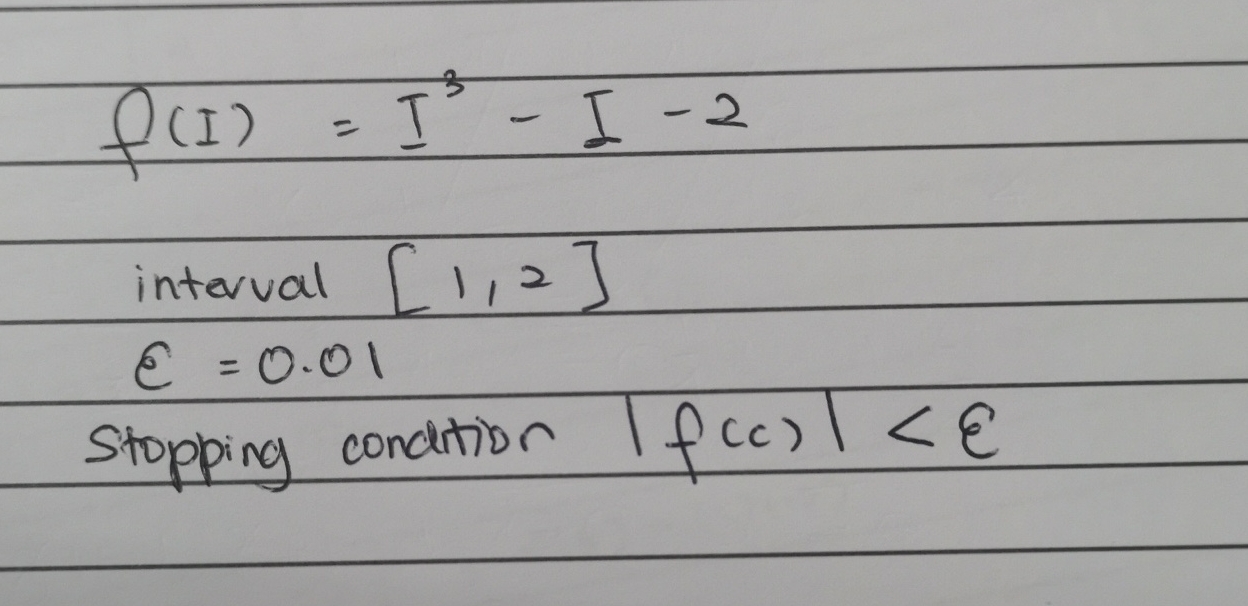 f(I) = I³ - I - 2
interval [1, 2]
ε = 0.01
Stopping condition |f(c)| < ε